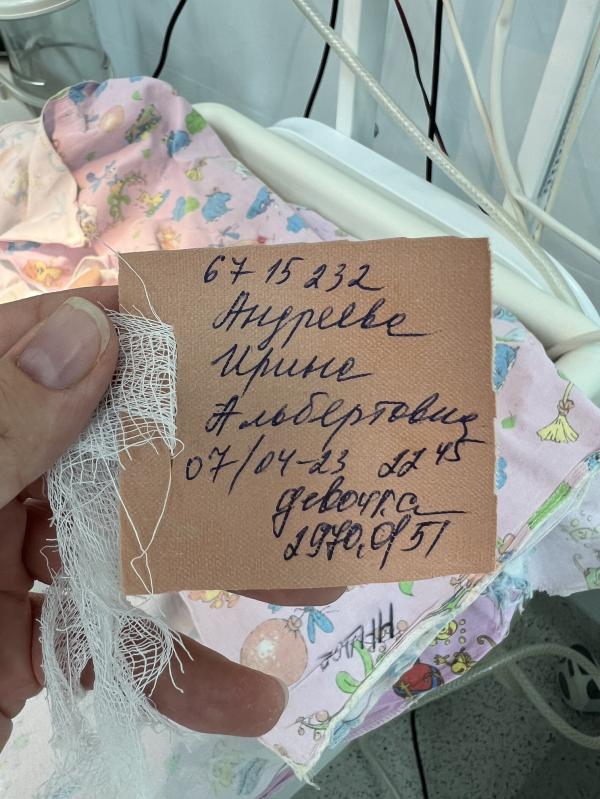 67 15 232
Андреева
Ирина
Альбертовна
07/04-23 22 45
девочка
2970,0/51